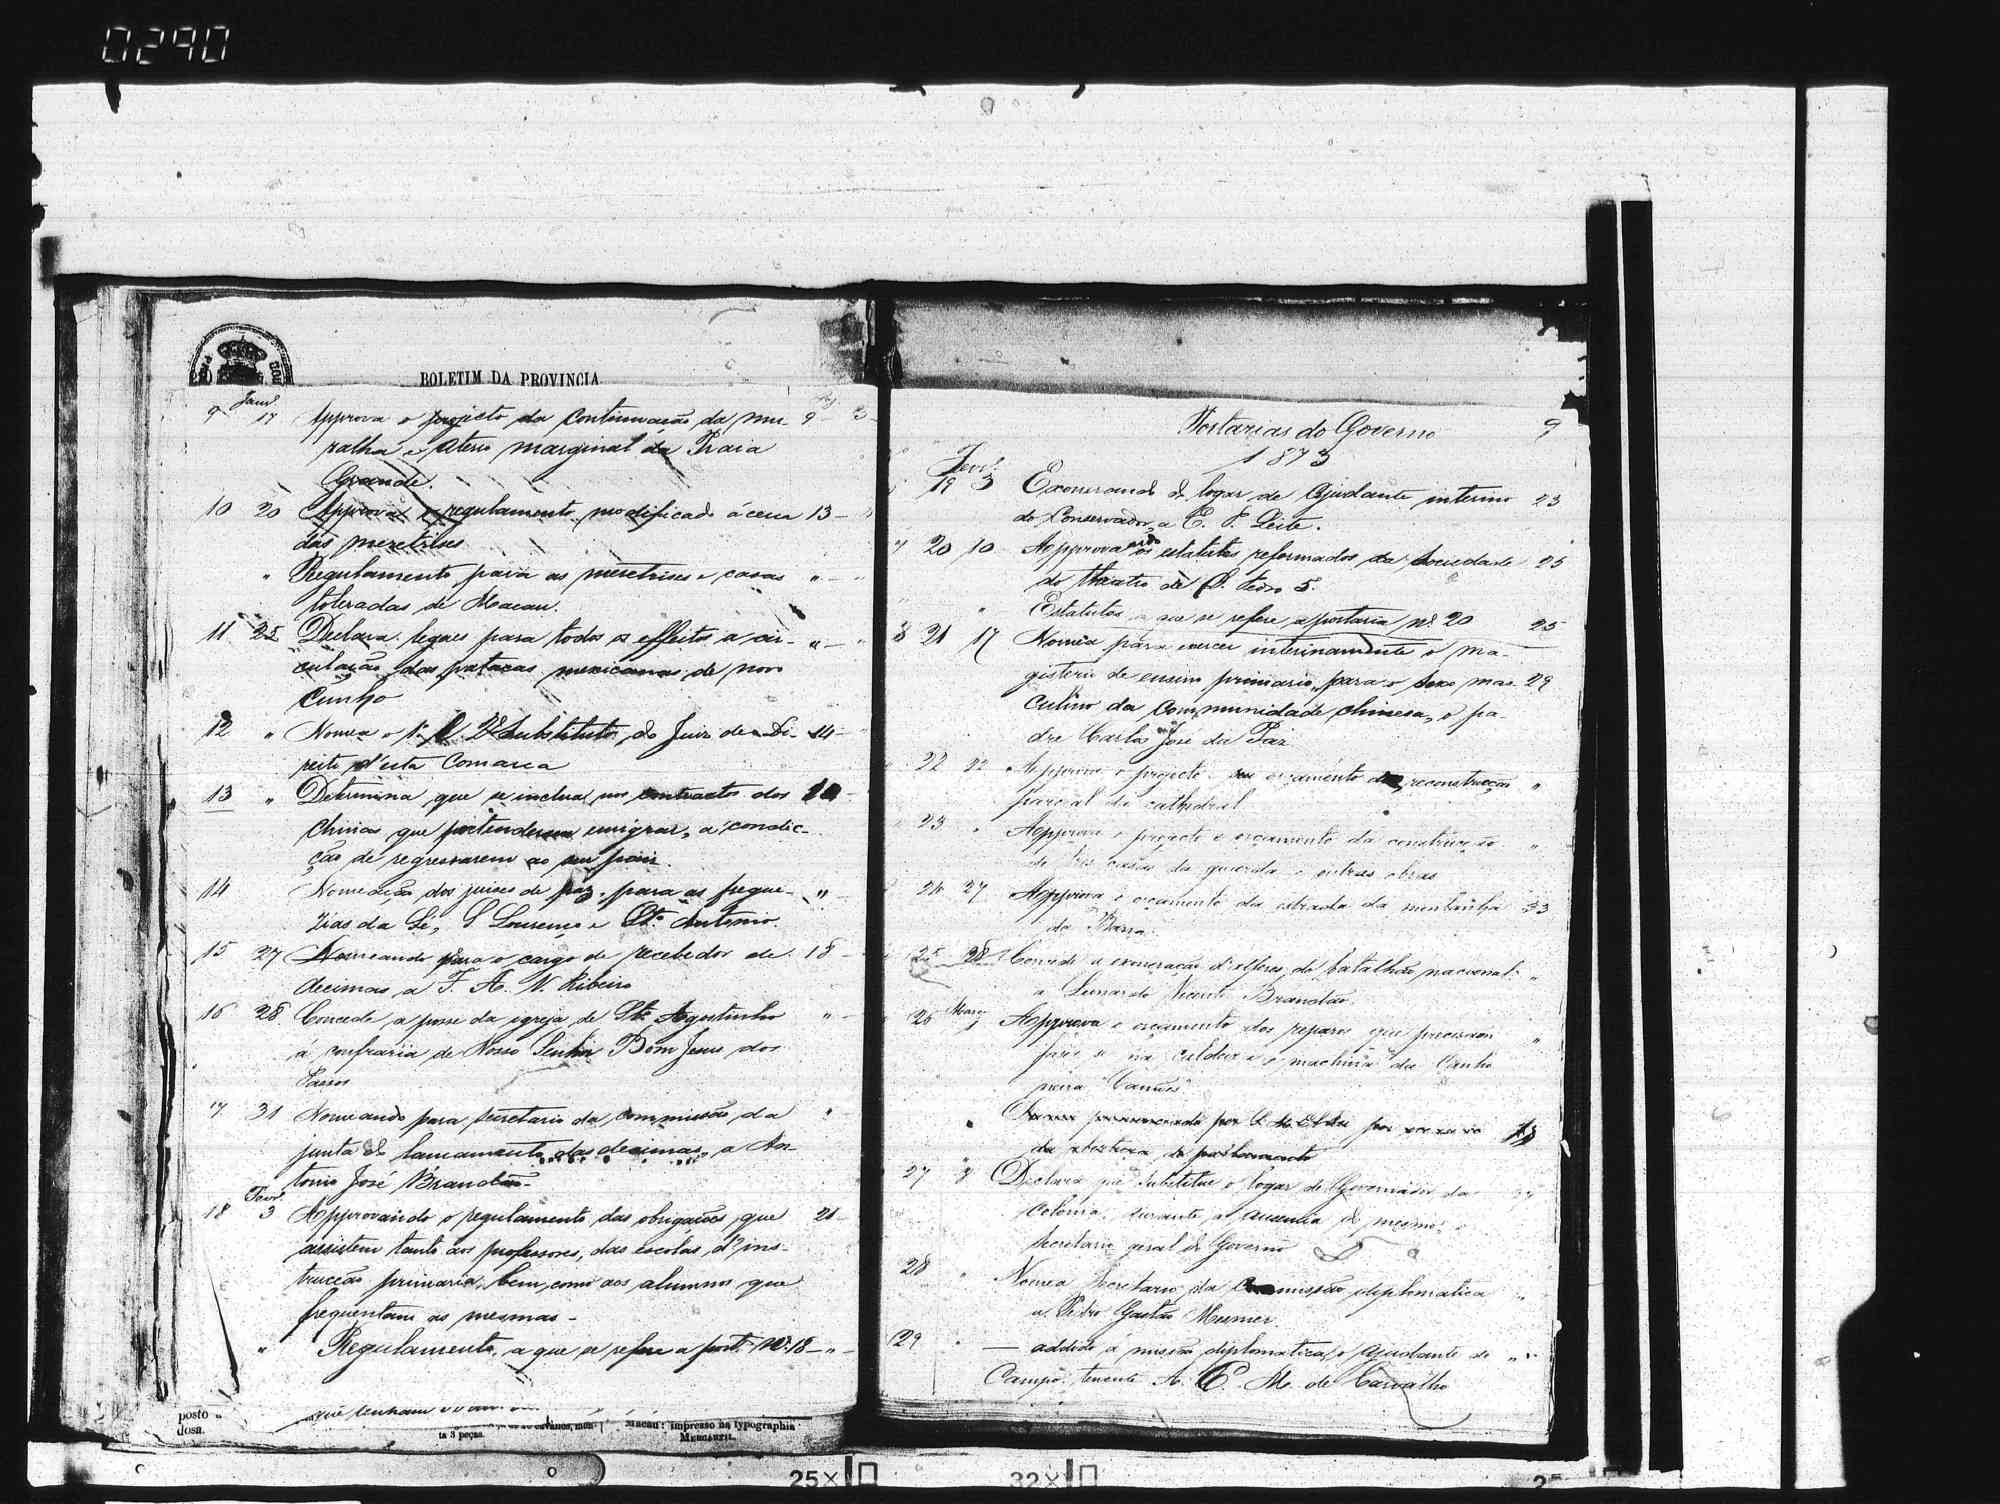 0290
BOLETIM DA PROVINCIA
Janr.
9 17 Approva o projecto da continuação da mu- 9
ralha e aterro marginal da Praia
Grande.
10 20 Approva o regulamento modificado ácerca 13 -
das meretrises
" Regulamento para as meretrises e casas " -
toleradas de Macau.
11 25 Declara legaes para todos os effeitos a cir- " -
culação das patacas mexicanas de novo
cunho
12 " Nomea o 1º e 2º Substituto do Juiz de Di- 14 -
reito d'esta Comarca
13 " Determina que se inclua nos contractos dos
chinas que pretenderem emigrar, a condic-
ção de regressarem ao seu paiz.
14 Nomeação dos juises de paz para as fregue- " -
zias da Sé, S Lourenço e Sto Antonio.
15 27 Nomeando para o cargo de recebedor de 18 -
decimas a F. A. V. Ribeiro
16 28 Concede a posse da egreja de Sto Agostinho " -
á confraria de Nosso Senhor Bom Jesus dos
Passos
17 31 Nomeando para secretario da commissão da "
junta de lançamento das decimas, a An-
tonio José Brandão -
Fevr.
18 3 Approvando o regulamento das obrigações que 21 -
assistem tanto aos professores das escolas d'ins-
trucção primaria, bem como aos alumnos que
frequentam as mesmas -
" Regulamento, a que se refere a port. Nº 18 - " -
que tenham
posto
dosa.
ta 3 peças.
Macau: Impresso na typographia
MERCANTIL.
Portarias do Governo 9
1873
Fevr.
19 3 Exonerando do logar de Ajudante interino 23
do Conservador, a E. P. Leite.
20 10 Approvando os estatutos reformados da Sociedade 25
do theatro de D. Pedro 5.
" Estatutos a que se refere a portaria nº 20 25
21 17 Nomea para exercer interinamente o ma-
gisterio de ensino primario, para o sexo mas- 29
culino da communidade chinesa, o pa-
dre Carlos José da Paz
22 22 Approva o projecto e seu orçamento da reconstrucção "
parcial da cathedral
23 " Approva o projecto e orçamento da construcção "
de tres casas da guarda e outras obras
24 27 Approva o orçamento da estrada da montanha 33
da Barra.
25 28 Concede a exoneração d'alferes do batalhão nacional "
a Leonardo Vicente Brandão.
26 Março Approva o orçamento dos reparos que precisam "
fazer se na caldeira e machina da Canho
neira "Camões"
27 8 Declara que substitue o logar de Governador da
Colonia, durante a ausencia do mesmo, o
Secretario geral do Governo
28 " Nomea Secretario da missão diplomatica "
a Pedro Gastão Mesnier.
29 " — addido á missão diplomatica, o ajudante de "
Campo tenente A. E. M. de Carvalho
25×
32×